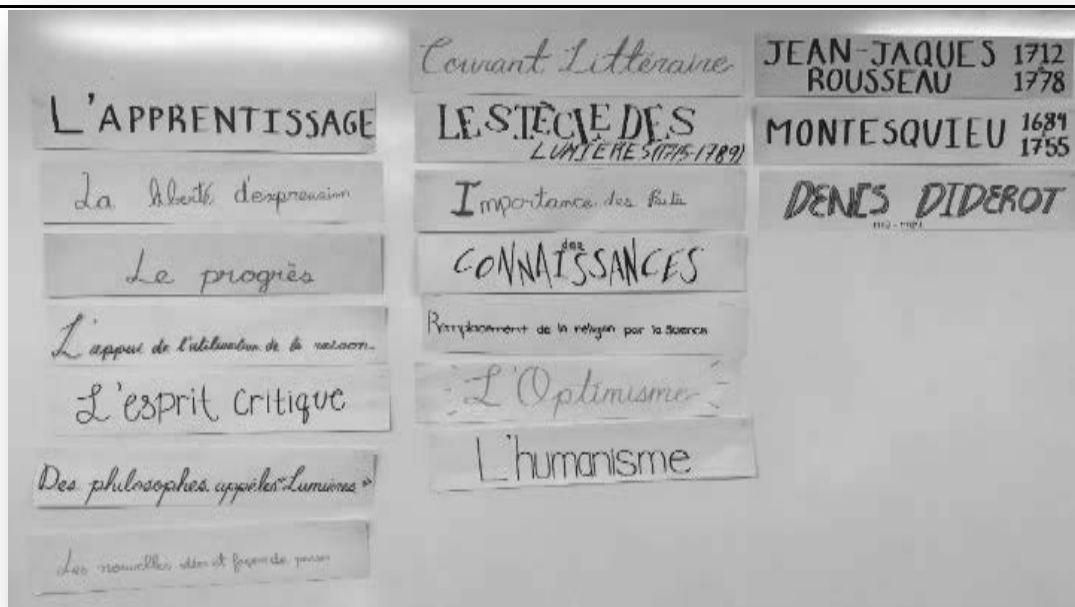 L'APPRENTISSAGE
La liberté d'expression
Le progrès
L'appui de l'utilisation de la raison
L'esprit critique
Des philosophes appelés "Lumières"
Les nouvelles idées et façon de penser
Courant Littéraire
LE SIÈCLE DES
LUMIÈRES (1715-1789)
Importance des faits
des
CONNAISSANCES
Remplacement de la religion par la Science
L'Optimisme
L'humanisme
JEAN-JAQUES 1712
ROUSSEAU 1778
MONTESQUIEU 1689
1755
DENIS DIDEROT